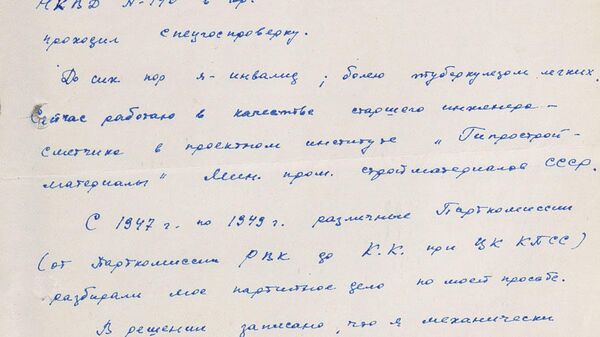 НКВД № в гор.
проходил спецгоспроверку.
До сих пор я - инвалид; болею туберкулезом легких.
Сейчас работаю в качестве старшего инженера -
сметчика в проектном институте "Гипрострой-
материалы" Мин. пром. стройматериалов СССР.
С 1947 г. по 1949 г. различные Парткомиссии
(от Парткомиссии РВК до К.К. при ЦК КПСС)
разбирали мое партийное дело по моей просьбе.
В решении записано, что я механически